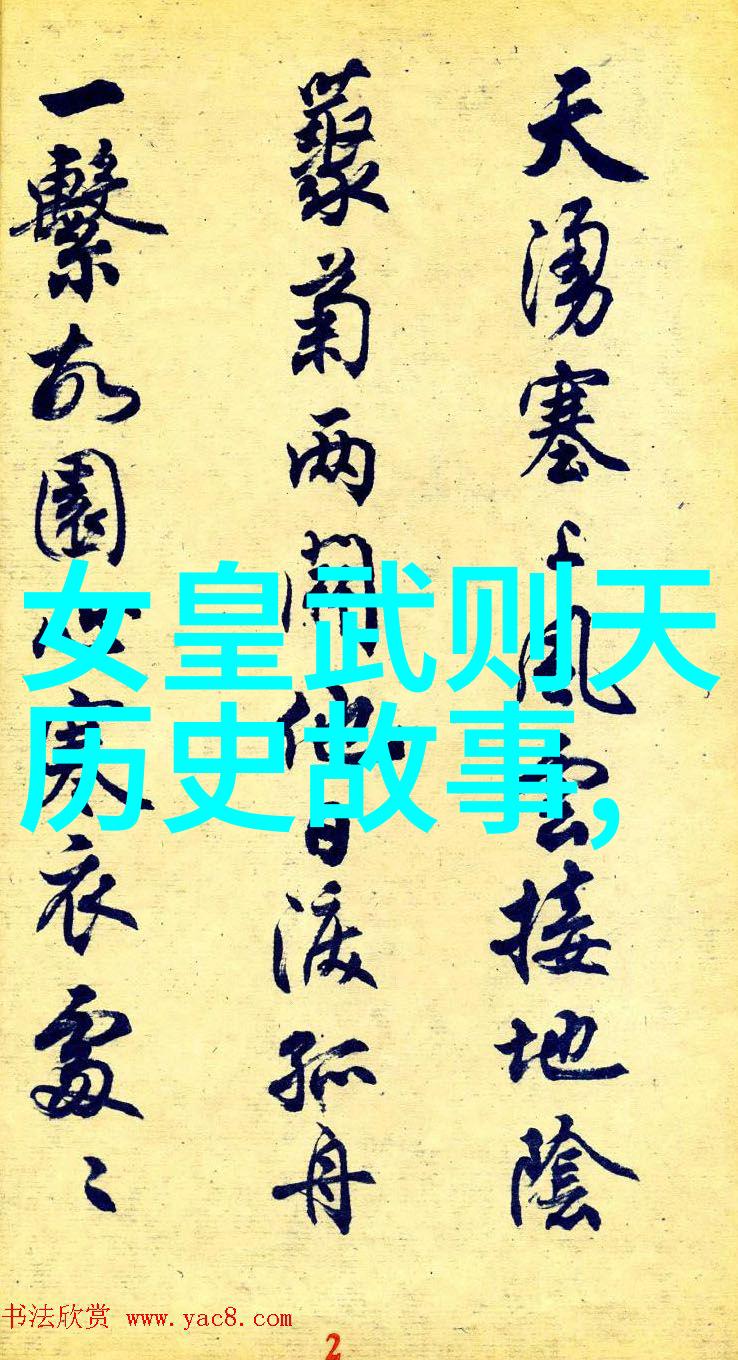 天湧塞上風雲接地陰
叢菊两開他日淚孤舟
一繫故園心寒衣處〻
女皇武则天
历史故事,
书法欣赏 www.yac8.com
2